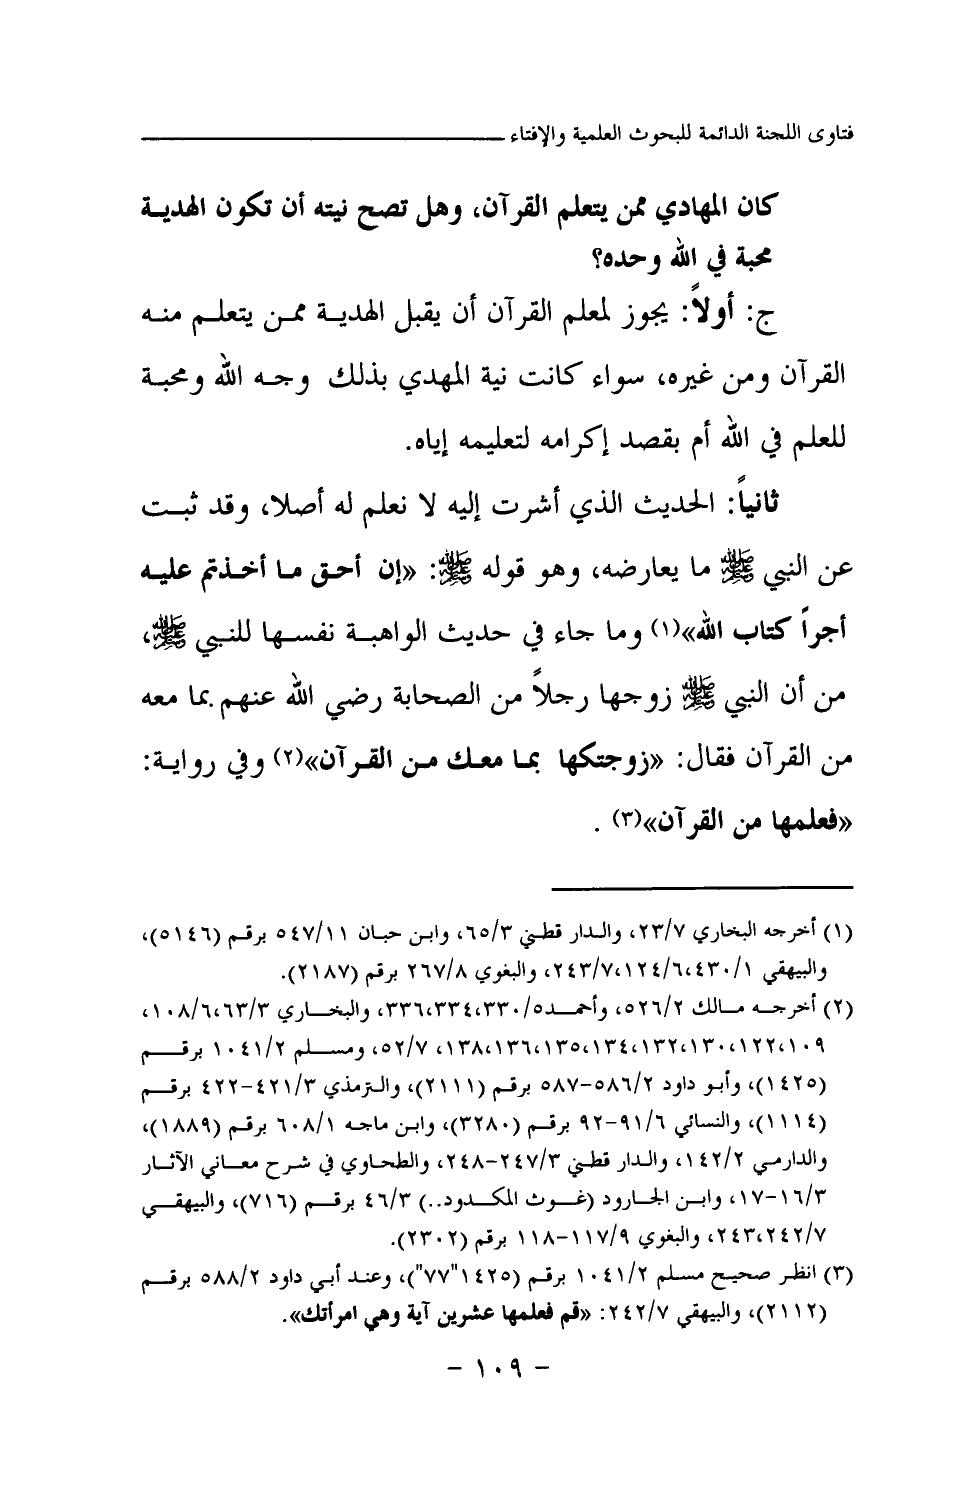 فتاوى اللجنة الدائمة للبحوث العلمية والإفتاء
كان المهادي ممن يتعلم القرآن، وهل تصح نيته أن تكون الهدية
محبة في الله وحده؟
ج: أولاً: يجوز لمعلم القرآن أن يقبل الهدية ممن يتعلم منه
القرآن ومن غيره، سواء كانت نية المهدي بذلك وجه الله ومحبة
للعلم في الله أم بقصد إكرامه لتعليمه إياه.
ثانياً: الحديث الذي أشرت إليه لا نعلم له أصلا، وقد ثبت
عن النبي ﷺ ما يعارضه، وهو قوله ﷺ: «إن أحق ما أخذتم عليه
أجراً كتاب الله»(١) وما جاء في حديث الواهبة نفسها للنبي ﷺ،
من أن النبي ﷺ زوجها رجلاً من الصحابة رضي الله عنهم بما معه
من القرآن فقال: «زوجتكها بما معك من القرآن»(٢) وفي رواية:
«فعلمها من القرآن»(٣) .
(١) أخرجه البخاري ٢٣/٧، والدار قطني ٦٥/٣، وابن حبان ٥٤٧/١١ برقم (٥١٤٦)،
والبيهقي ٤٣٠/١، ١٢٤/٦، ٢٤٣/٧، والبغوي ٢٦٧/٨ برقم (٢١٨٧).
(٢) أخرجه مالك ٥٢٦/٢، وأحمد ٣٣٠/٥، ٣٣٤، ٣٣٦، والبخاري ٦٣/٣، ١٠٨/٦،
١٠٩، ١٢٢، ١٣٠، ١٣٢، ١٣٤، ١٣٥، ١٣٦، ١٣٨، ٥٢/٧، ومسلم ١٠٤١/٢ برقم
(١٤٢٥)، وأبو داود ٥٨٦/٢-٥٨٧ برقم (٢١١١)، والترمذي ٤٢١/٣-٤٢٢ برقم
(١١١٤)، والنسائي ٩١/٦-٩٢ برقم (٣٢٨٠)، وابن ماجه ٦٠٨/١ برقم (١٨٨٩)،
والدارمي ١٤٢/٢، والدار قطني ٢٤٧/٣-٢٤٨، والطحاوي في شرح معاني الآثار
١٦/٣-١٧، وابن الجارود (غوث المكدود..) ٤٦/٣ برقم (٧١٦)، والبيهقي
٢٤٢/٧، ٢٤٣، والبغوي ١١٧/٩-١١٨ برقم (٢٣٠٢).
(٣) انظر صحيح مسلم ١٠٤١/٢ برقم (١٤٢٥"٧٧")، وعند أبي داود ٥٨٨/٢ برقم
(٢١١٢)، والبيهقي ٢٤٢/٧: «قم فعلمها عشرين آية وهي امرأتك».
- ١٠٩ -